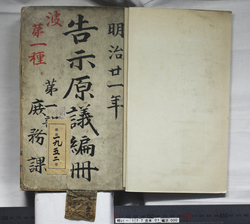 明治廿一年
告示原議編冊
庶務課
波
第一種
第一
二九五二